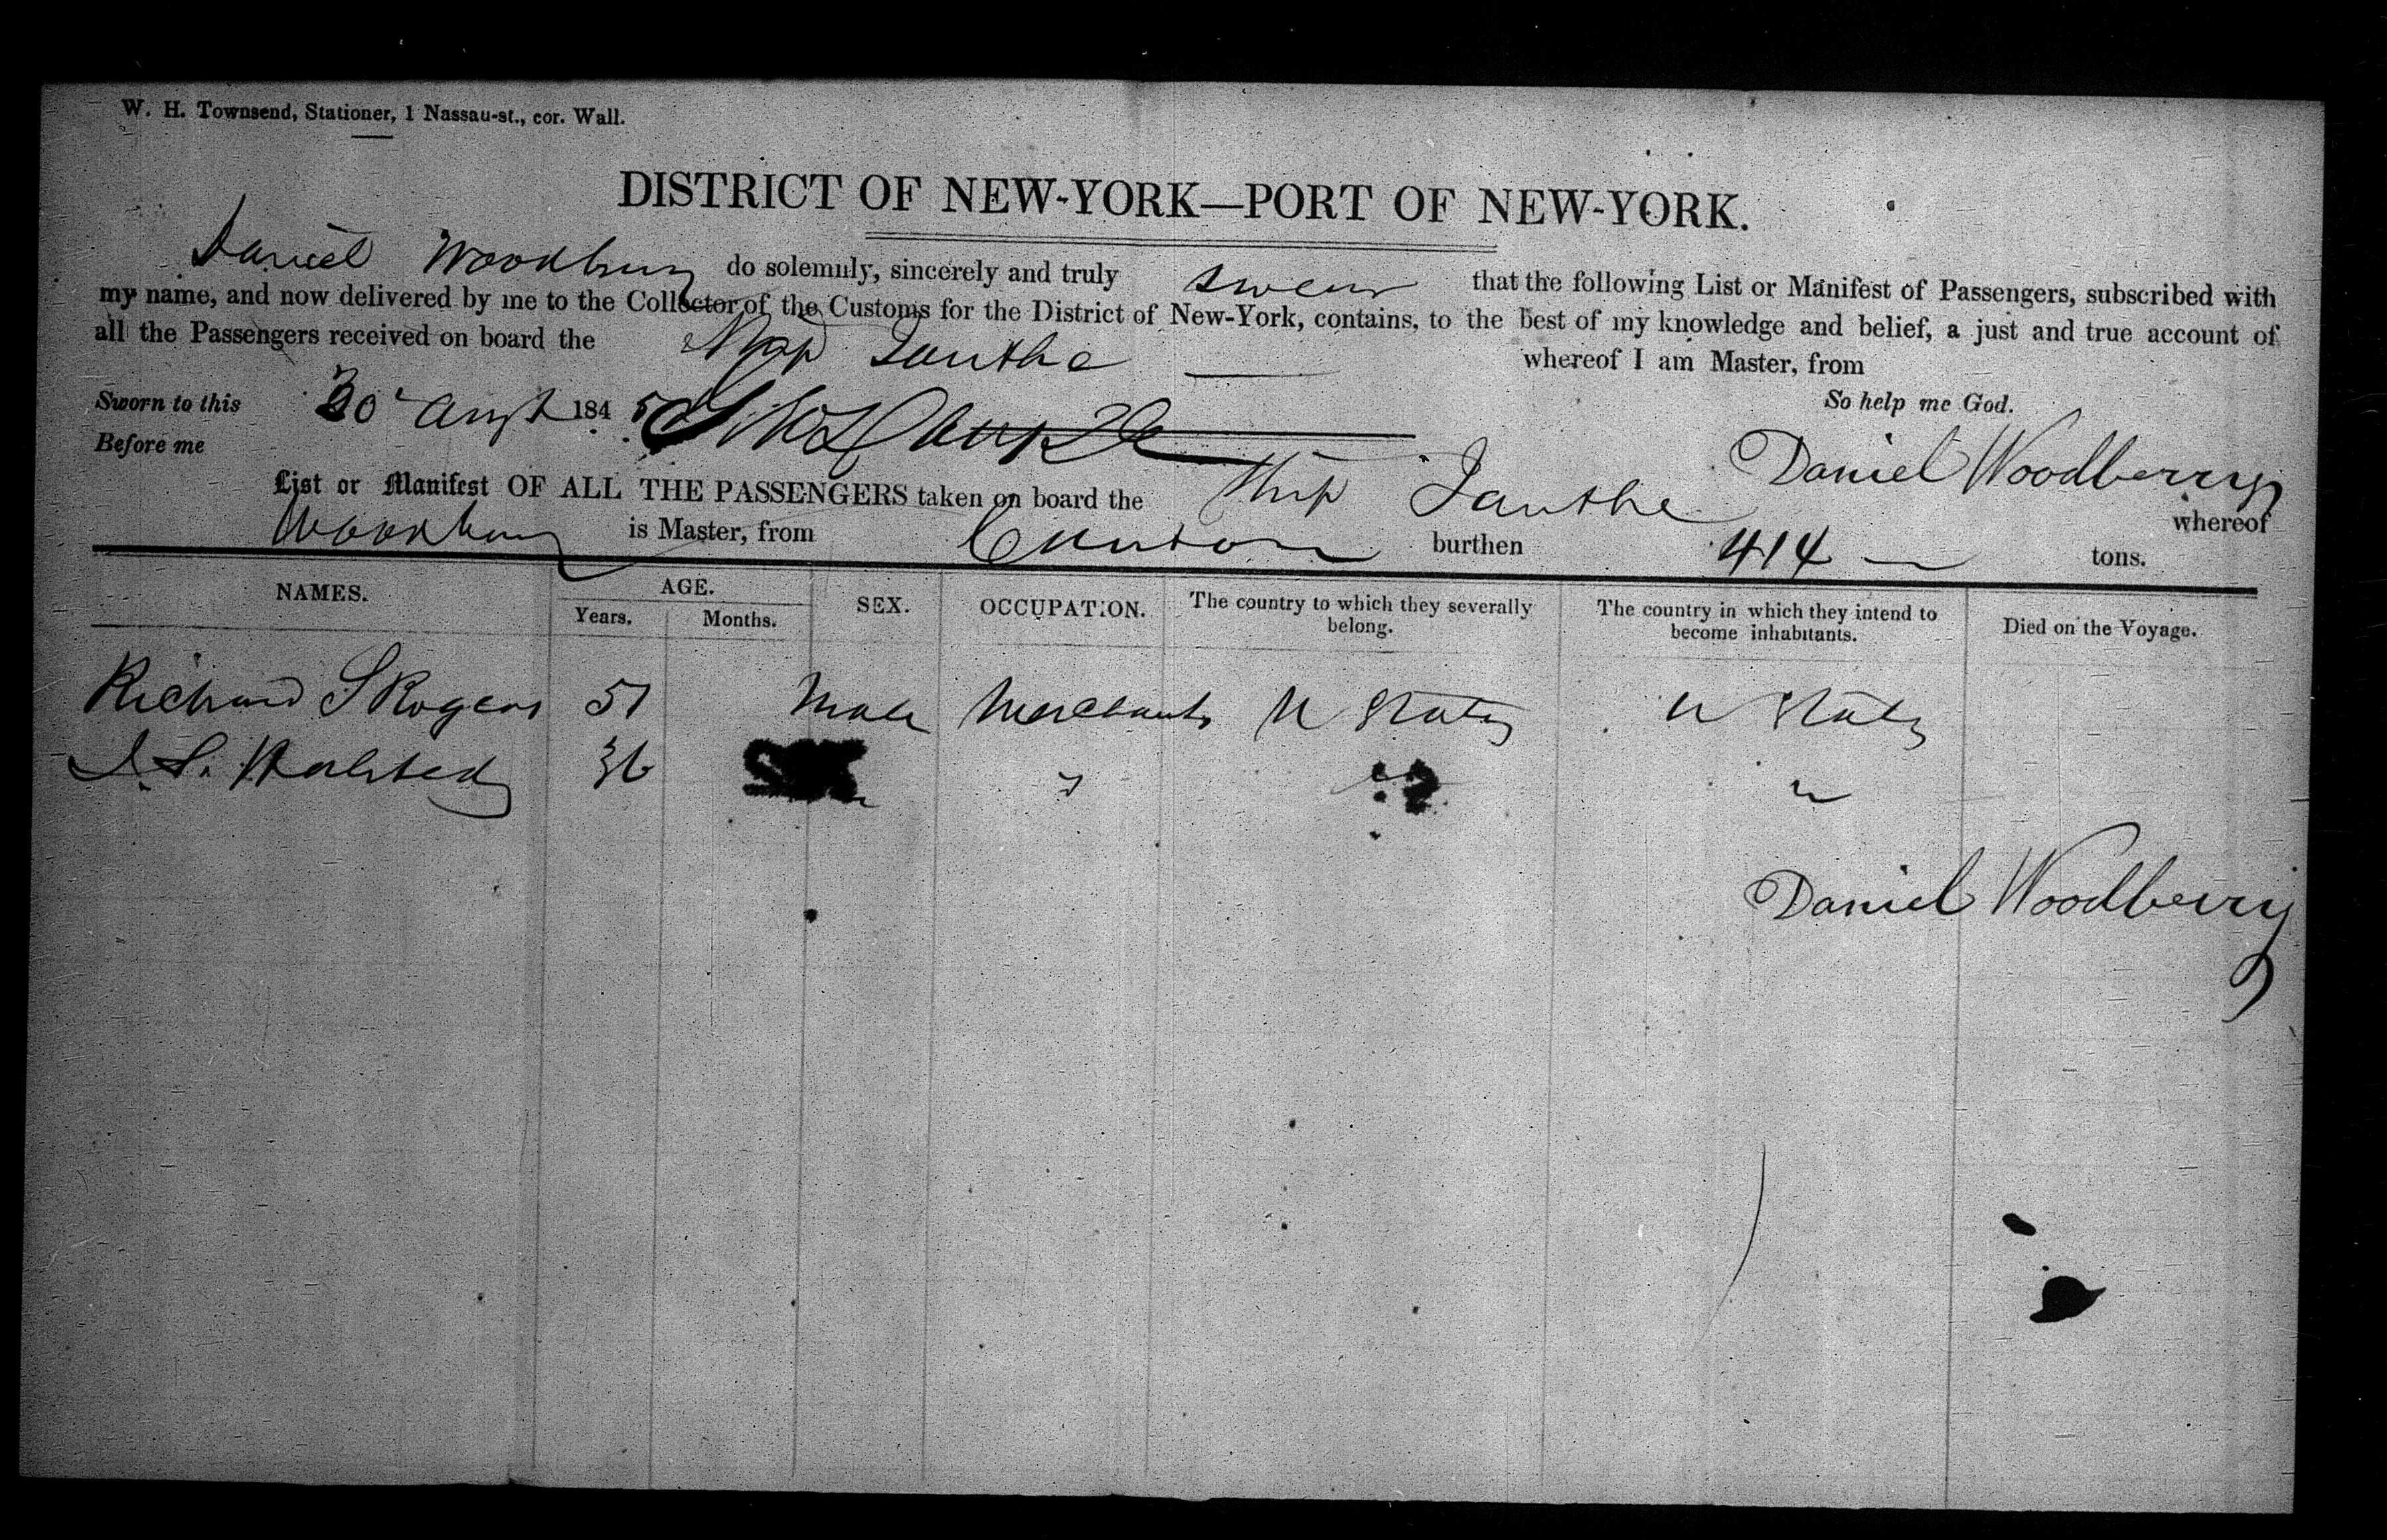 W. H. Townsend, Stationer, 1 Nassau-st., cor. Wall.
DISTRICT OF NEW-YORK—PORT OF NEW-YORK.
Daniel Woodbury do solemnly, sincerely and truly swear that the following List or Manifest of Passengers, subscribed with
my name, and now delivered by me to the Collector of the Customs for the District of New-York, contains, to the best of my knowledge and belief, a just and true account of
all the Passengers received on board the Ship Ianthe whereof I am Master, from
Sworn to this 30 Augt 1845 So help me God.
Before me Daniel Woodberry
List or Manifest OF ALL THE PASSENGERS taken on board the Ship Ianthe whereof
Woodbury is Master, from Canton burthen 414 tons.
NAMES. AGE. SEX. OCCUPATION. The country to which they severally belong. The country in which they intend to become inhabitants. Died on the Voyage.
Years. Months.
Richard S Rogers 51 Male Merchants U States U States
Halsted 36 " "
Daniel Woodberry